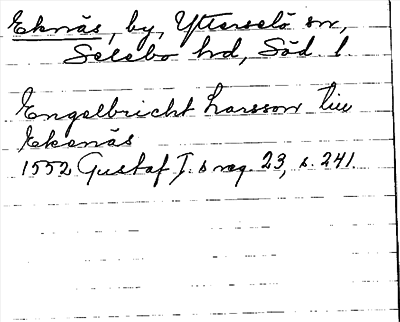 Eknäs, by, Ytterselö sn,
Selebo hd, Söd. l.
Engelbricht Larsson till
Ekenäs
1552 Gustaf I. s reg. 23, s. 241.